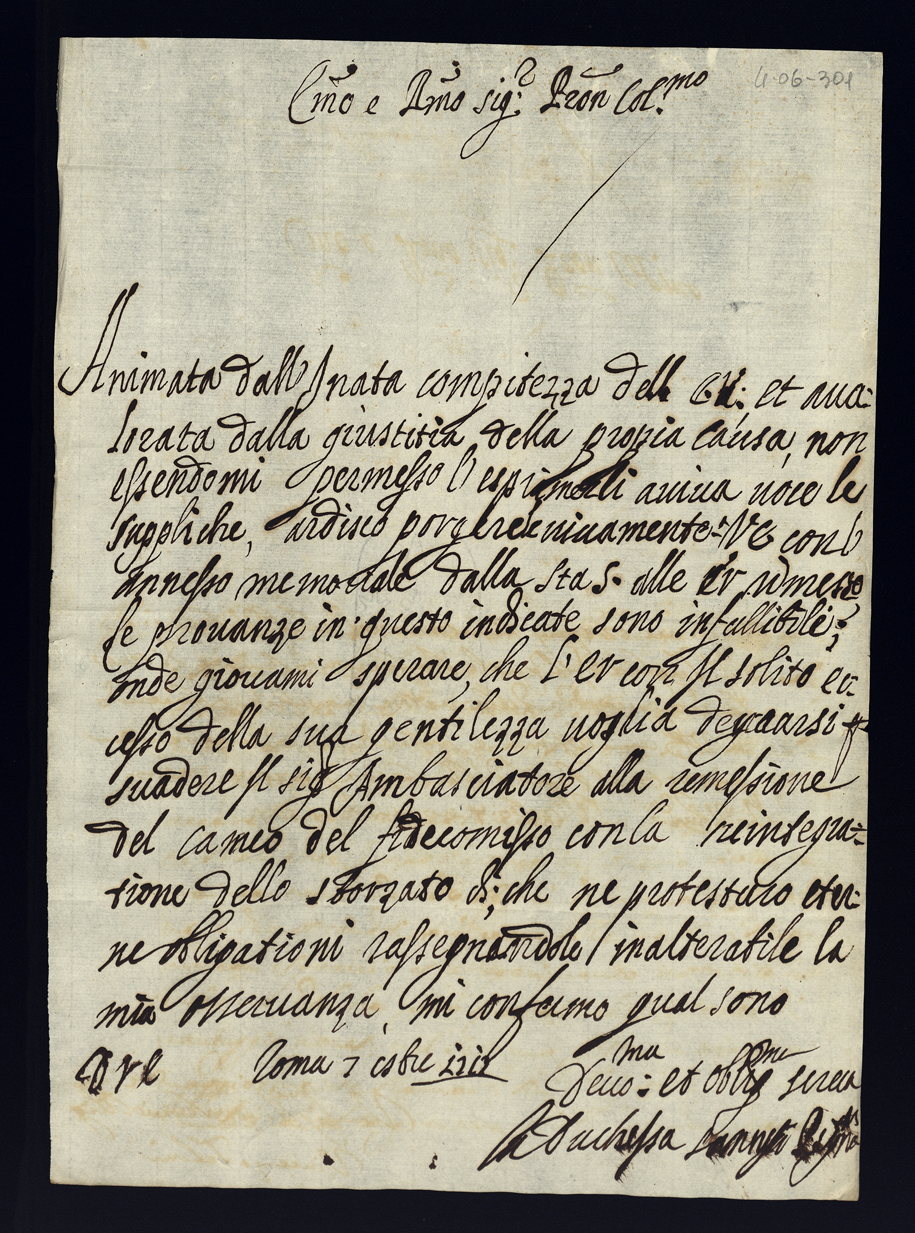 4-06-301
Emo e Rmo sig.r Pron Col.mo
Animata dall Jnata compitezza dell EV: et aua-
lorata dalla giustitia della propia causa, non
essendomi permesso l esprimerli auiua uoce le
suppliche, ardisco porgere conl
annesso memoriale dalla sta s. alle EV rimesso
le prouanze in questo indicate sono infallibili;
onde giouami sperare, che l'EV con Jl solito ec-
cesso della sua gentilezza uoglia degnarsi per
suadere Jl sig Ambasciatore alla remessione
del cameo del fidecomisso conla reintegra-
tione dello sborzato che ne protestaro eter-
ne obligationi rassegnandole inalterabile la
mia osseruanza, mi confermo qual sono
D V E Roma 7
Deuo:ma et oblig.ma serua
La Duchessa